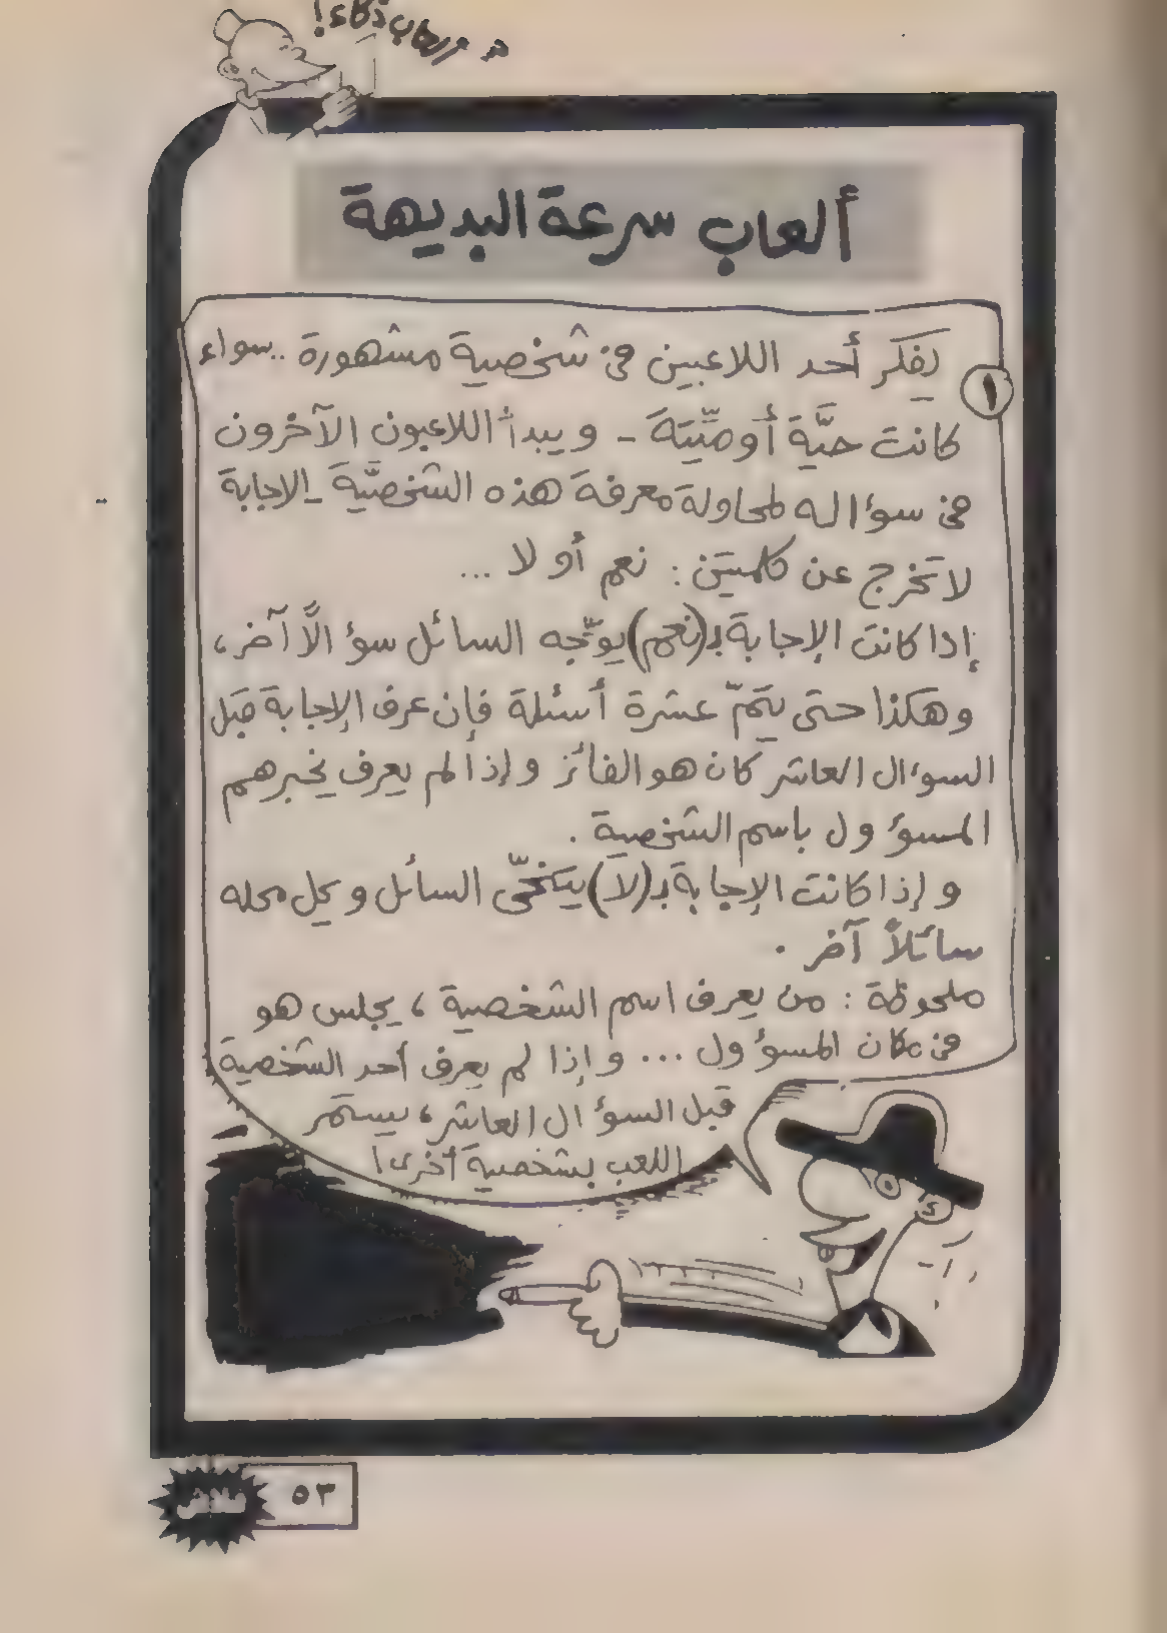 ذكاء!
ألعاب سرعة البديهة
١ يفكر أحد اللاعبين فى شخصية مشهورة .. سواء
كانت حيَّة أو ميِّتة - ويبدأ اللاعبون الآخرون
فى سؤاله لمحاولة معرفة هذه الشخصيَّة - الاجابة
لا تخرج عن كلمتين : نعم أو لا ...
إذا كانت الإجابة بـ (نعم) يوّجه السائل سؤالاً آخر ،
وهكذا حتى يتمّ عشرة أسئلة فإن عرف الإجابة قبل
السؤال العاشر كان هو الفائز وإذا لم يعرف يخبرهم
المسؤول باسم الشخصية .
وإذا كانت الإجابة بـ (لا) يتنحّى السائل ويحل محله
سائلاً آخر .
ملحوظة : من يعرف اسم الشخصية ، يجلس هو
فى مكان المسؤول ... وإذا لم يعرف أحد الشخصية
قبل السؤال العاشر ، يستمر
اللعب بشخصية أخرى !
٥٣
فلاش